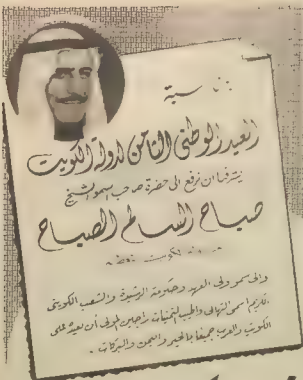 بمناسبة
العيد الوطني الثامن لدولة الكويت
يتشرف ان نرفع إلى حضرة صاحب السمو الشيخ
صباح السالم الصباح
الكويت
والى سمو ولي العهد وحكومته الرشيدة والشعب الكويتي
الكريم اسمى التهاني واطيب التمنيات راجين المولى أن يعيده على
الكويت والعرب جميعا بالخير واليمن والبركات .